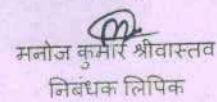 मनोज कुमार श्रीवास्तव
निबंधक लिपिक